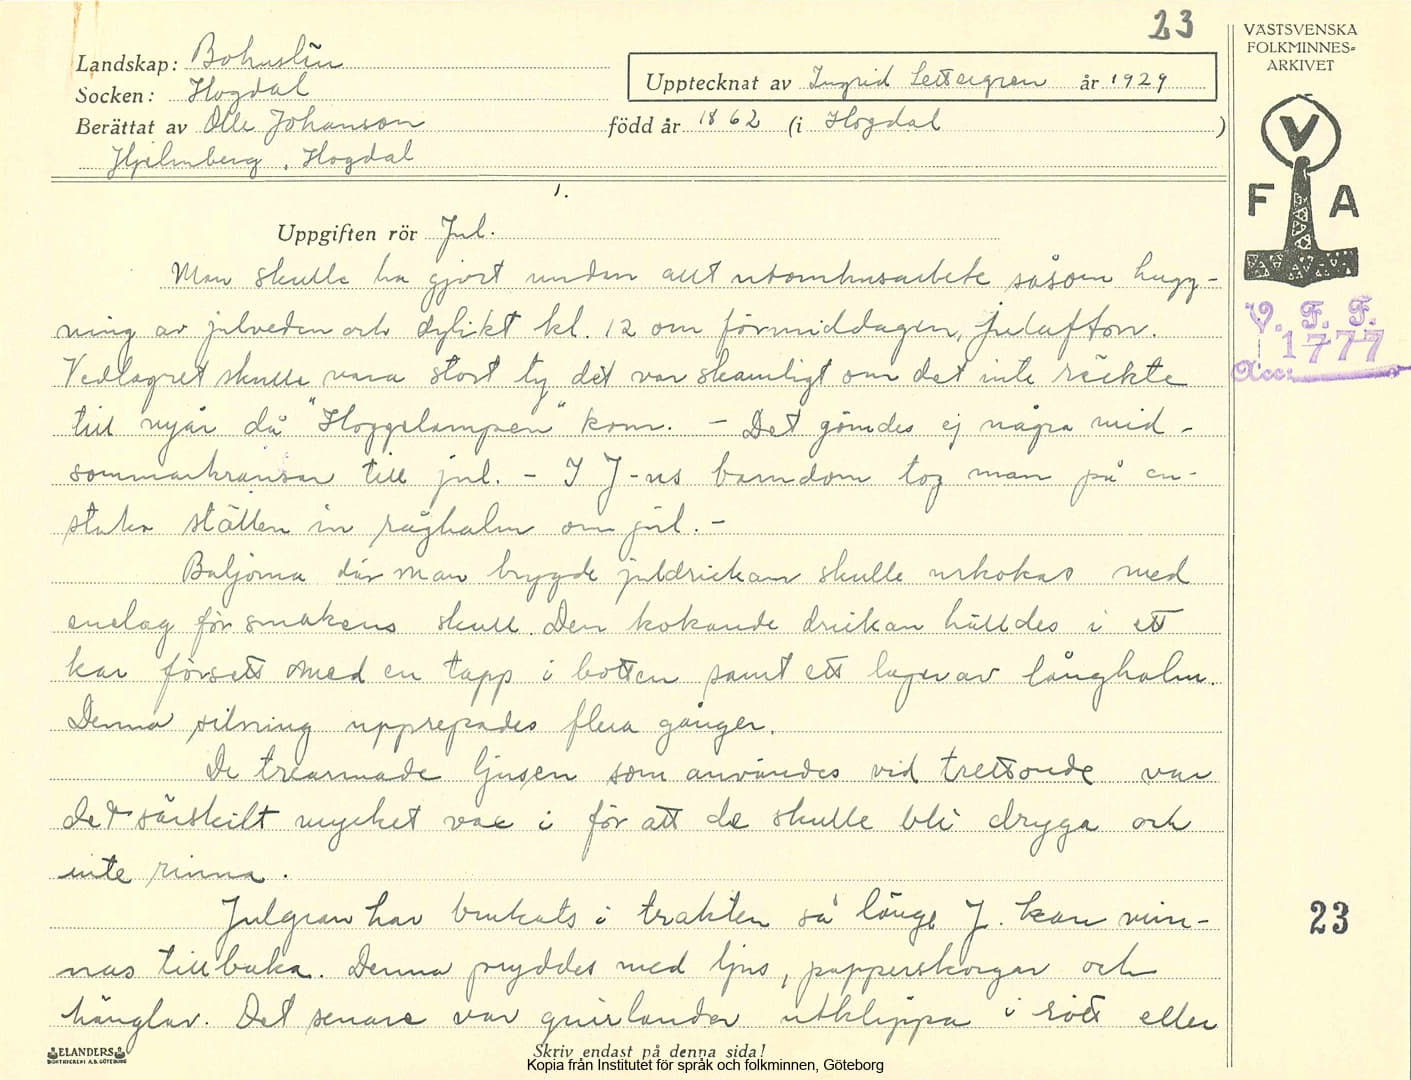 23
VÄSTSVENSKA
FOLKMINNES=
ARKIVET
Landskap: Bohuslän
Upptecknat av Ingrid Settergren år 1929
Socken: Hogdal
Berättat av Olle Johanson född år 1862 (i Hogdal )
Hjelmberg, Hogdal
V
F A
1.
Uppgiften rör Jul.
Man skulle ha gjort undan allt utomhusarbete såsom hugg-
ning av julveden och dylikt kl. 12 om förmiddagen, julafton.
Vedlagret skulle vara stort ty det var skamligt om det inte räckte
till nyår då "Hoggelampen" kom. - Det gömdes ej några mid-
sommarkransar till jul. - I J-ns barndom tog man på en-
staka ställen in råghalm om jul. -
Baljorna där man brygde juldrickan skulle urkokas med
enelag för smakens skull. Den kokande drickan hälldes i ett
kar försett med en tapp i botten samt ett lager av långhalm.
Denna silning upprepades flera gånger.
De trearmade ljusen som användes vid trettonde var
det särskilt mycket vax i för att de skulle bli dryga och
inte rinna.
Julgran har brukats i trakten så länge J. kan min-
nas tillbaka. Denna pryddes med ljus, papperskorgar och
hänglar. Det senare var guirlander utklippa i rött eller
V. F. F.
1777
Acc:
23
ELANDERS
BOKTRYCKERI A.B. GÖTEBORG
Skriv endast på denna sida!
Kopia från Institutet för språk och folkminnen, Göteborg